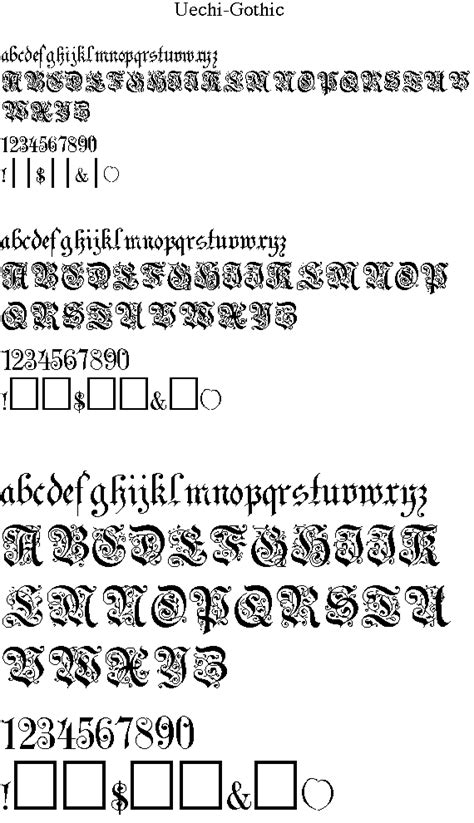 Uechi-Gothic
abcdefghijklmnopqrstuvwxyz
ABCDEFGHIJKLMNOPQRSTUV
WXYZ
1234567890
!□□$□□&□()
abcdefghijklmnopqrstuvwxyz
ABCDEFGHIJKLMNOP
QRSTUVWXYZ
1234567890
!□□$□□&□()
abcdefghijklmnopqrstuvwxyz
ABCDEFGHIJK
LMNOPQRSTU
VWXYZ
1234567890
!□□$□□&□()